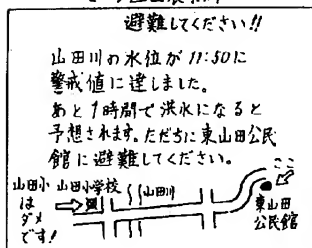 避難してください!!
山田川の水位が11:50に
警戒値に達しました。
あと1時間で洪水になると
予想されます。ただちに東山田公民
館に避難してください。
ここ
山田小
は
ダメ
です!
山田小学校
山田川
東山田
公民館